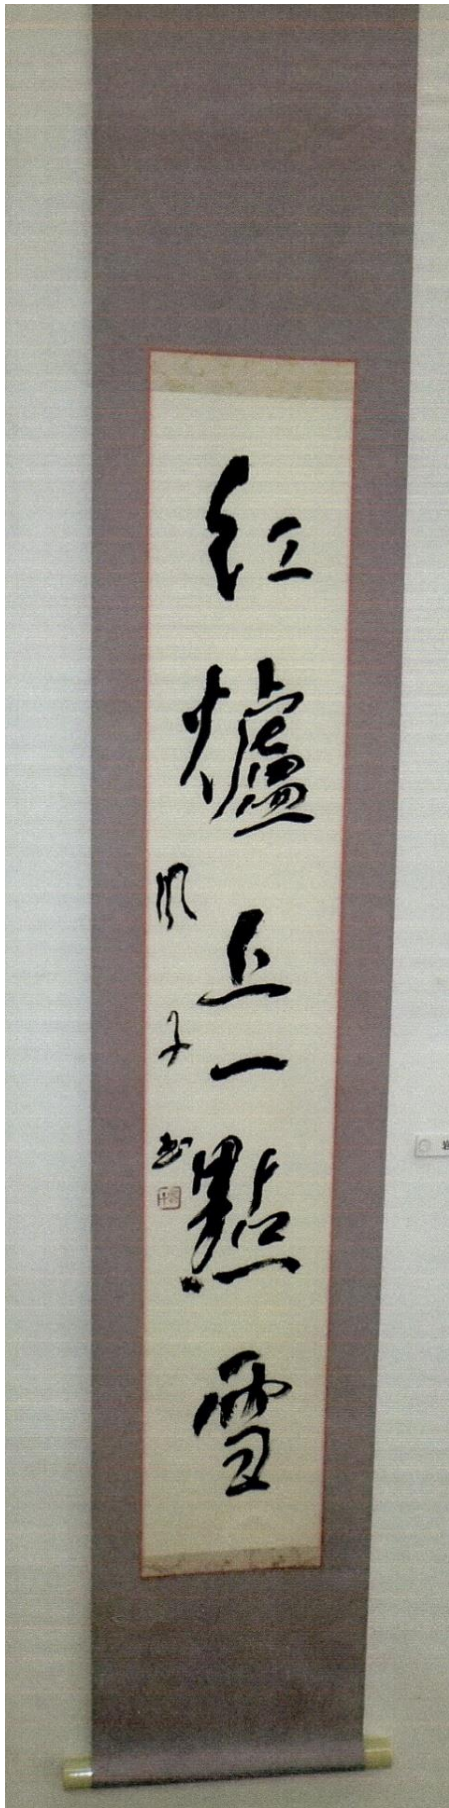 紅爐上一點雪
風子書